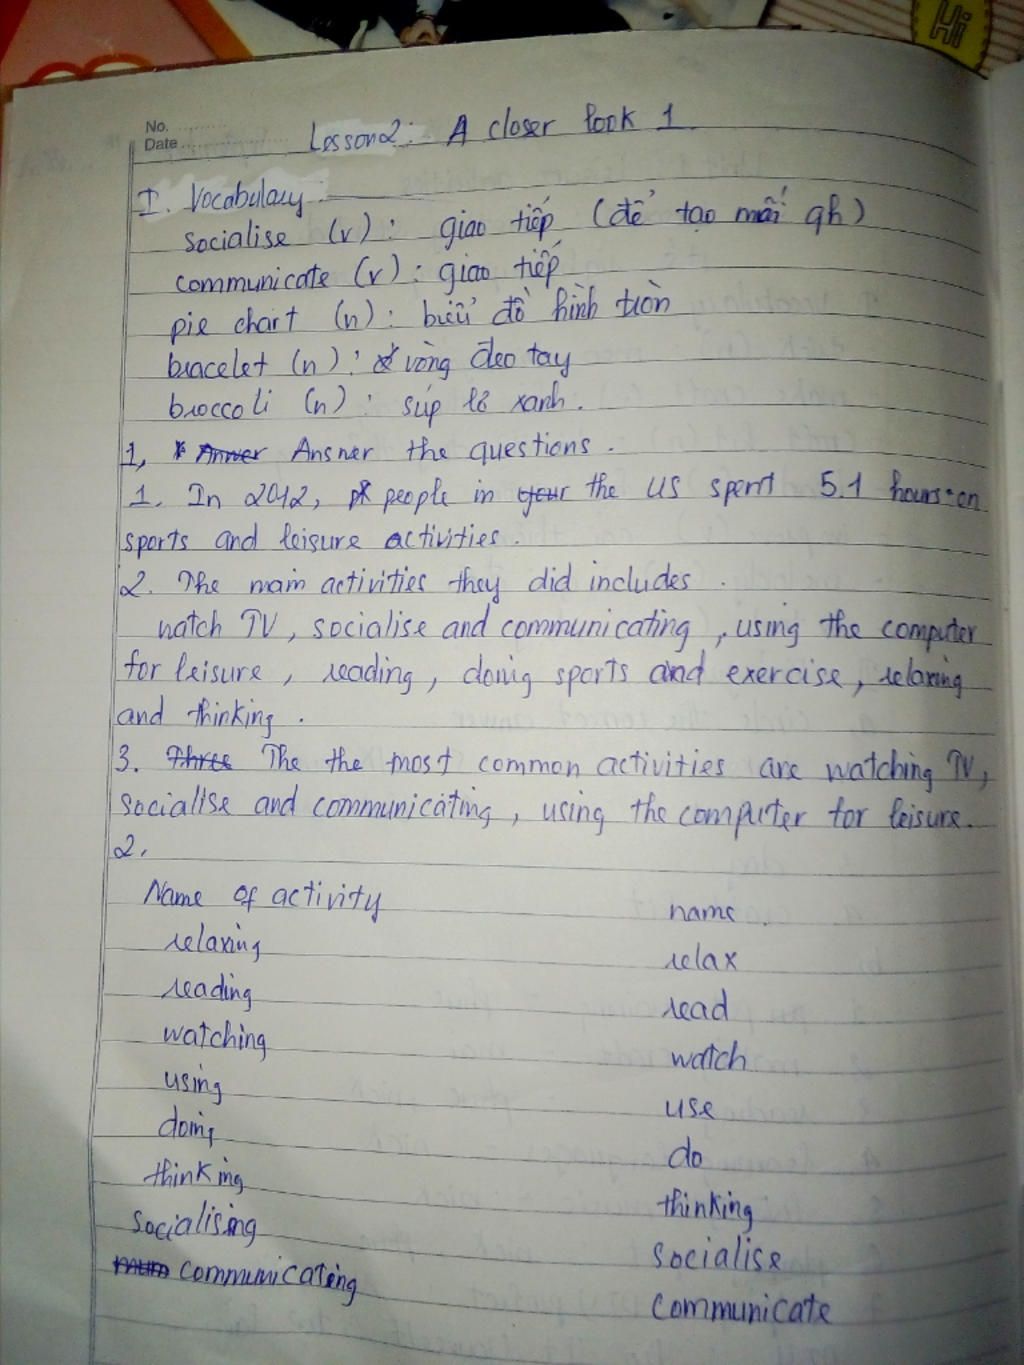 Hi
No.
Date
Lesson 2: A closer look 1
I. Vocabulary:
socialise (v): giao tiếp (để tạo mối qh)
communicate (v): giao tiếp
pie chart (n): biểu đồ hình tròn
bracelet (n): vòng đeo tay
broccoli (n): súp lơ xanh.
1, Answer the questions.
1. In 2012, people in the US spent 5.1 hours on
sports and leisure activities.
2. The main activities they did includes.
watch TV, socialise and communicating, using the computer
for leisure, reading, doing sports and exercise, relaxing
and thinking.
3. Three The the most common activities are watching TV,
socialise and communicating, using the computer for leisure.
2,
Name of activity name
relaxing relax
reading read
watching watch
using use
doing do
thinking thinking
socialising socialise
communicating communicate